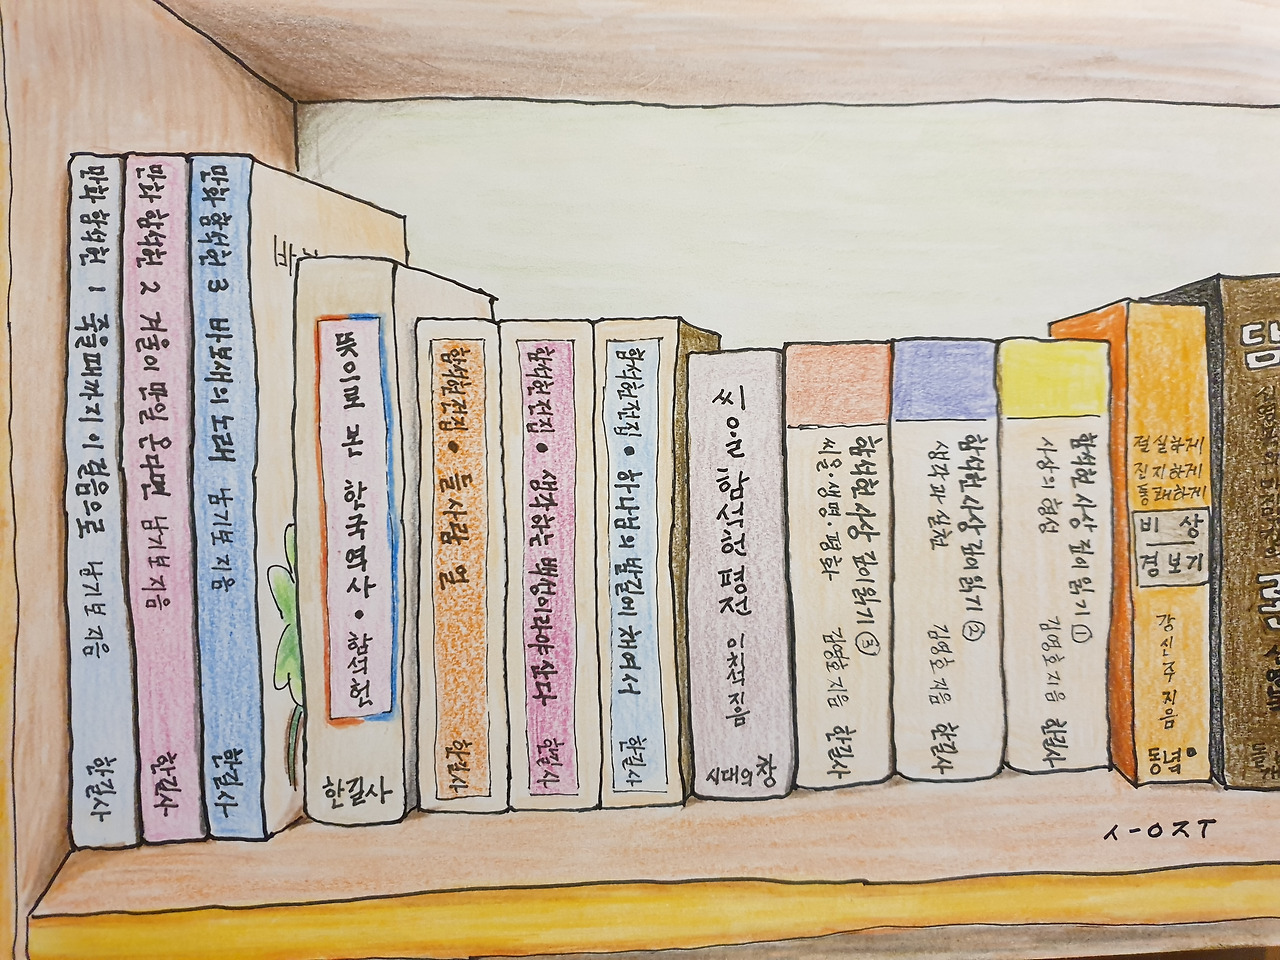 만화 함석헌 1 죽을때까지 이걸음으로 남기보 지음 한길사
만화 함석헌 2 겨울이 만일 온다면 남기보 지음 한길사
만화 함석헌 3 바보새의 노래 남기보 지음 한길사
뜻으로 본 한국역사 • 함석헌
한길사
함석헌전집 • 들사람 얼 한길사
함석헌전집 • 생각하는 백성이라야 산다 한길사
함석헌전집 • 하나님의 발길에 채여서 한길사
이치석 지음
시대의창
함석헌 사상 깊이 읽기 ③
씨올·생명·평화 김영호 지음 한길사
함석헌 사상 깊이 읽기 ②
생각과 실천 김영호 지음 한길사
함석헌 사상 깊이 읽기 ①
사상의 김영호 지음 한길사
절실하게
진지하게
통쾌하게
비 상
경보기
강신주 지음
동녘
ㅅㅡㅇㅈㅜ